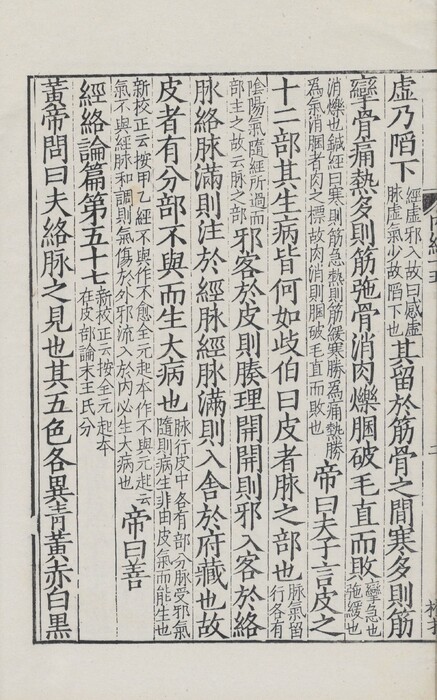 虛乃陷下經虛邪入故曰感虛脉虛氣少故陷下也其留於筋骨之間寒多則筋攣急也弛緩也
攣骨痛熱多則筋弛骨消肉爍䐃破毛直而敗
消爍也鍼經曰寒則筋急熱則筋緩寒勝爲痛熱勝爲氣消䐃者肉之標故肉消則䐃破毛直而敗也帝曰夫子言皮之
十二部其生病皆何如歧伯曰皮者脉之部也脉氣留行各有
陰陽氣隨經所過而部主之故云脉之部邪客於皮則腠理開開則邪入客於絡
脉絡脉滿則注於經脉經脉滿則入舍於府藏也故
皮者有分部不與而生大病也脉行皮中各有部分脉受邪氣隨則病生非由皮氣而能生也
新校正云按甲乙經不與作不愈全元起本作不與元起云氣不與經脉和調則氣傷於外邪流入於内必生大病也帝曰善
經絡論篇第五十七新校正云按全元起本在皮部論末王氏分
黃帝問曰夫絡脉之見也其五色各異青黃赤白黑